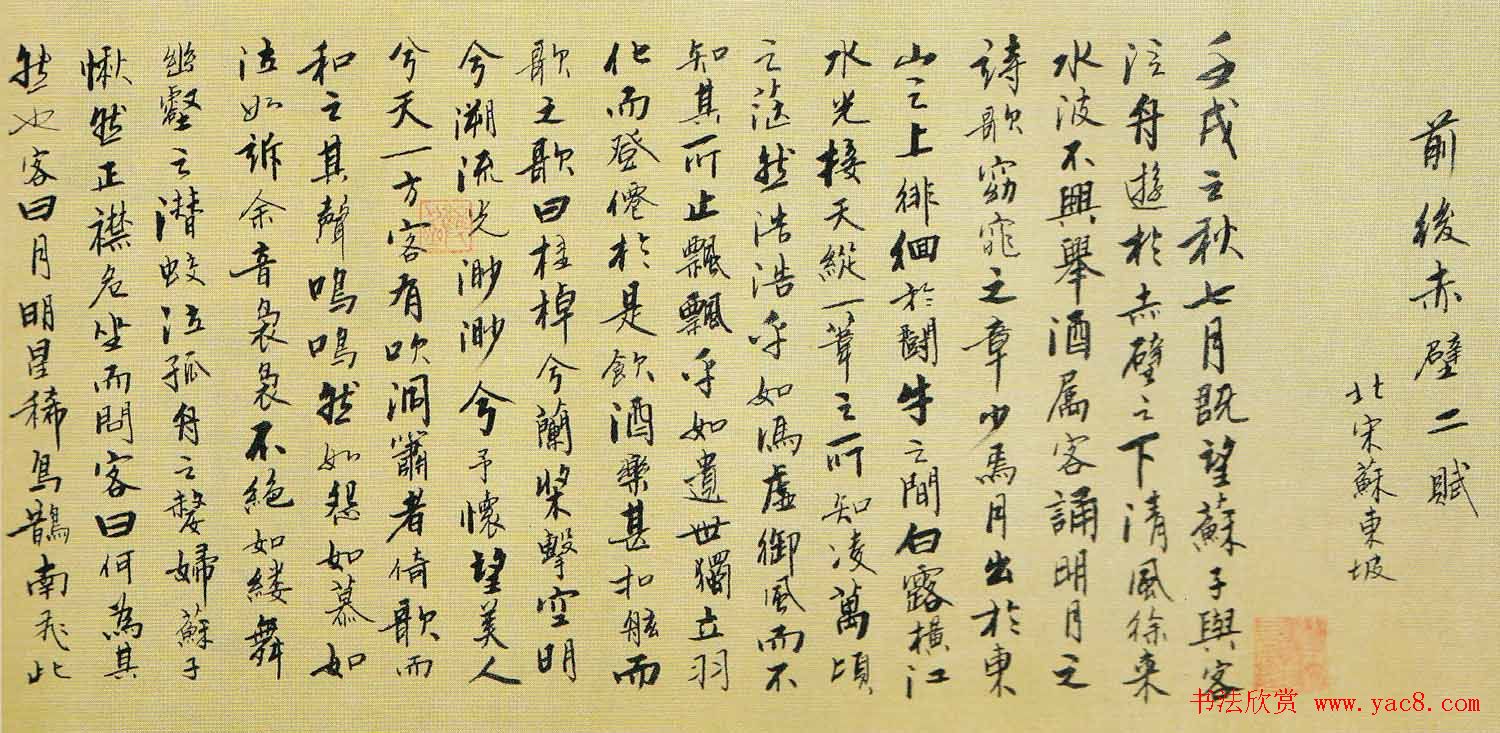 前後赤壁二賦
北宋蘇東坡
壬戌之秋七月既望蘇子與客
泛舟遊於赤壁之下清風徐来
水波不興舉酒属客誦明月之
詩歌窈窕之章少焉月出於東
山之上徘徊於鬪牛之間白露橫江
水光接天縱一葦之所知凌萬頃
之茫然浩浩乎如馮虛御風而不
知其所止飄飄乎如遺世獨立羽
化而登僊於是飲酒樂甚扣舷而
歌之歌曰桂棹兮蘭槳擊空明
兮溯流光渺渺兮予懷望美人
兮天一方客有吹洞簫者倚歌而
和之其聲嗚嗚然如怨如慕如
泣如訴余音裊裊不絕如縷舞
幽壑之潛蛟泣孤舟之嫠婦蘇子
愀然正襟危坐而問客曰何為其
然也客曰月明星稀烏鵲南飛此
书法欣赏 www.yac8.com